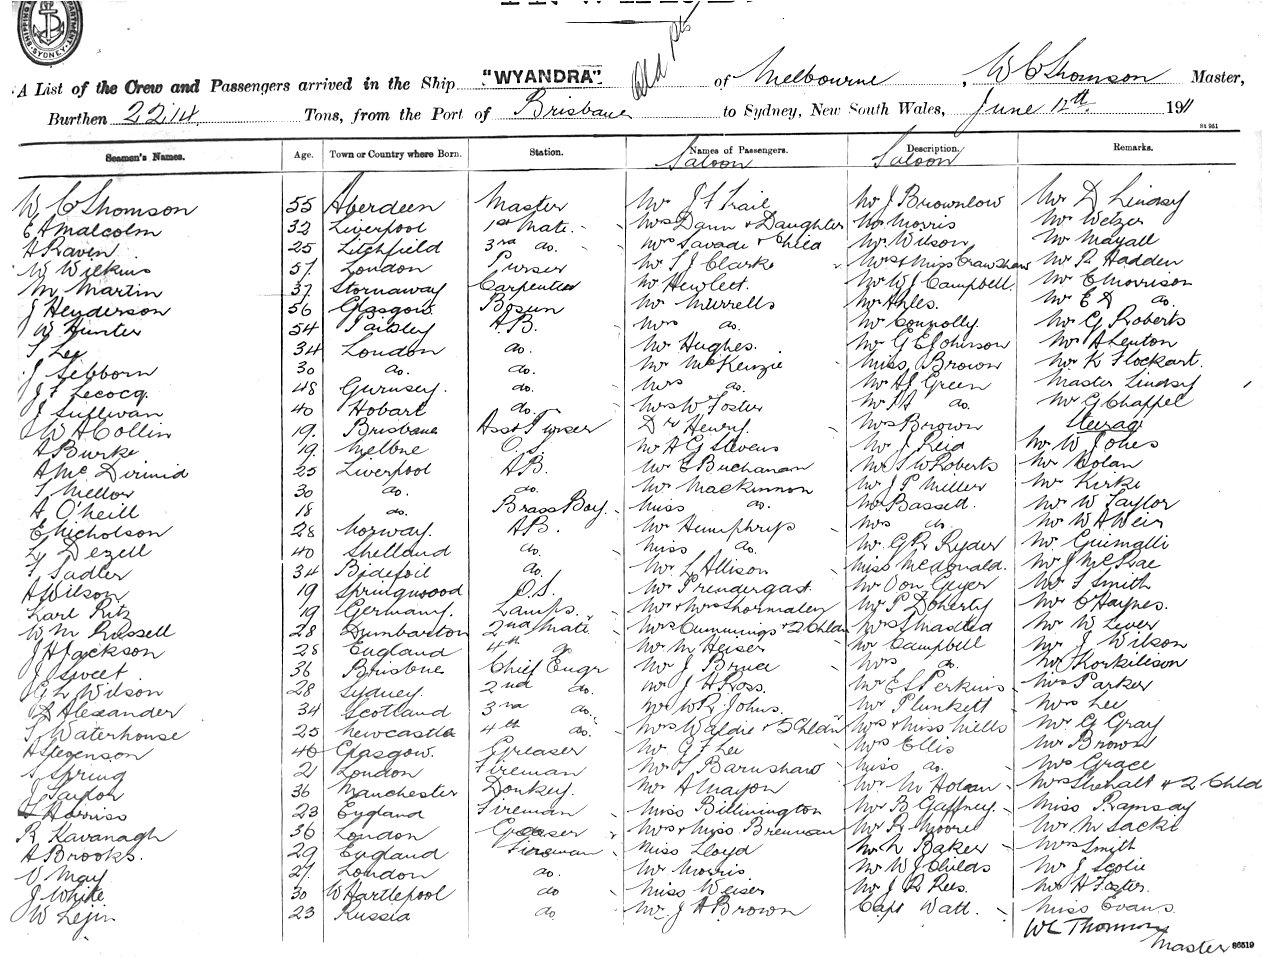 SYDNEY
A List of the Crew and Passengers arrived in the Ship "WYANDRA" of Melbourne, W C Thomson Master,
Burthen 2214 Tons, from the Port of Brisbane to Sydney, New South Wales, June 12th 1911
St 951
Seamen's Names. Age. Town or Country where Born. Station. Names of Passengers. Description. Remarks.
Saloon Saloon
W C Thomson 55 Aberdeen Master Mr J F Trail Mr J Brownlow Mr D Lindsay
C A Malcolm 32 Liverpool 1st Mate Mrs Dann & Daughter Mr Morris Mr Welzer
A Raven 25 Litchfield 3rd do. Mrs Savade & Child Mr Wilson Mr Mayall
W Wilkins 57 London Purser Mr T J Clarke Mrs & Miss Crawshaw Mr R Hadden
M Martin 37 Stornaway Carpenter Mr Hewlett Mr W J Campbell Mr C Morrison
J Henderson 56 Glasgow Bosun Mr Murrells Mr Ahles. Mr E D do.
W Hunter 54 Paisley A.B. Mrs do. Mr Connolly Mr G Roberts
T Lee 34 London do. Mr Hughes. Mr G E Johnson Mr A Lenton
J Sibborn 30 do. do. Mr McKenzie Miss Brown Mr K Flockart.
J F Lecocq. 48 Gurnsey. do. Mrs do. Mr A J Green Master Lindsay
J Sullivan 40 Hobart do. Mrs W Foster Mr J A do. Mr G Chappel
W A Collin 19 Brisbane Asst Purser Dr Henry. Mrs Brown Steerage
A Burke 19 Melbne O.S. Mr A G Stevens Mr J Reid Mr W Jones
A McDirmid 25 Liverpool A.B. Mr E Buchanan Mr T W Roberts Mr Nolan
T Mellor 30 do. do. Mr Mackinnon Mr J P Miller Mr Kirke
A O'Neill 18 do. Brass Boy Miss do. Mr Bassett. Mr W Taylor
E Nicholson 28 Norway. A.B. Mr Humphrys Mrs do. Mr W A Weir
Dezell 40 Shetland do. Miss do. Mr G R Ryder Mr Guimalli
T Sadler 34 do. Mr L Allison Miss McDonald. Mr J McRae
A Wilson 19 Springwood O.S. Mr Prendergast. Mr Von Geyer Mr T Smith
Karl Ritz 19 Germany. Lamps. Mr & Mrs Thormalen Mr P Doherty Mr C Haynes.
W M Russell 28 Dumbarton 2nd Mate Mrs Cummings & 2 Chldn Mrs Mr W Lever
J H Jackson 28 England 4th do Mr M Heiser Mr Campbell Mr J Wilson
J Sweet 36 Brisbne Chief Engr Mr J Bruce Mrs do. Mr Korkilison
G L Wilson 28 Sydney. 2nd do. Mr J A Ross. Mr E S Perkins Mrs Parker
Alexander 34 Scotland 3rd do. Mr W R Johns. Mr Plunkett Mrs Lee
T Waterhouse 25 Newcastle 4th do. Mrs Waldie & 5 Chldn Mrs & Miss Mells Mr G Gray
A Stevenson 40 Glasgow. Greaser Mr G F Lee Mrs Ellis Mr Brown
T Spring 21 London Fireman Mr T Barnshaw Miss do. Mrs Grace
J Taylor 36 Manchester Donkey. Mr A Mayon Mr M Holean Mrs Shehalt & 2 Chld
Harriss 23 England Fireman Miss Billinington Mr B Gaffney. Miss Ramsay
R Kavanagh 36 London Greaser Mrs & Miss Brennan Mr R Moore Mr M Sacke
A Brooks. 29 England Fireman Miss Lloyd Mr Baker Mrs Smith
V May 27 London do. Mr Morris Mr W J Childs Mr J Scolie
J White 30 W Hartlepool do Miss Weiser Mr J R Rees Mr A Foster.
W Lejin 23 Russia do Mr J A Brown Capt Watt. Miss Evans.
W C Thomson
Master 86519